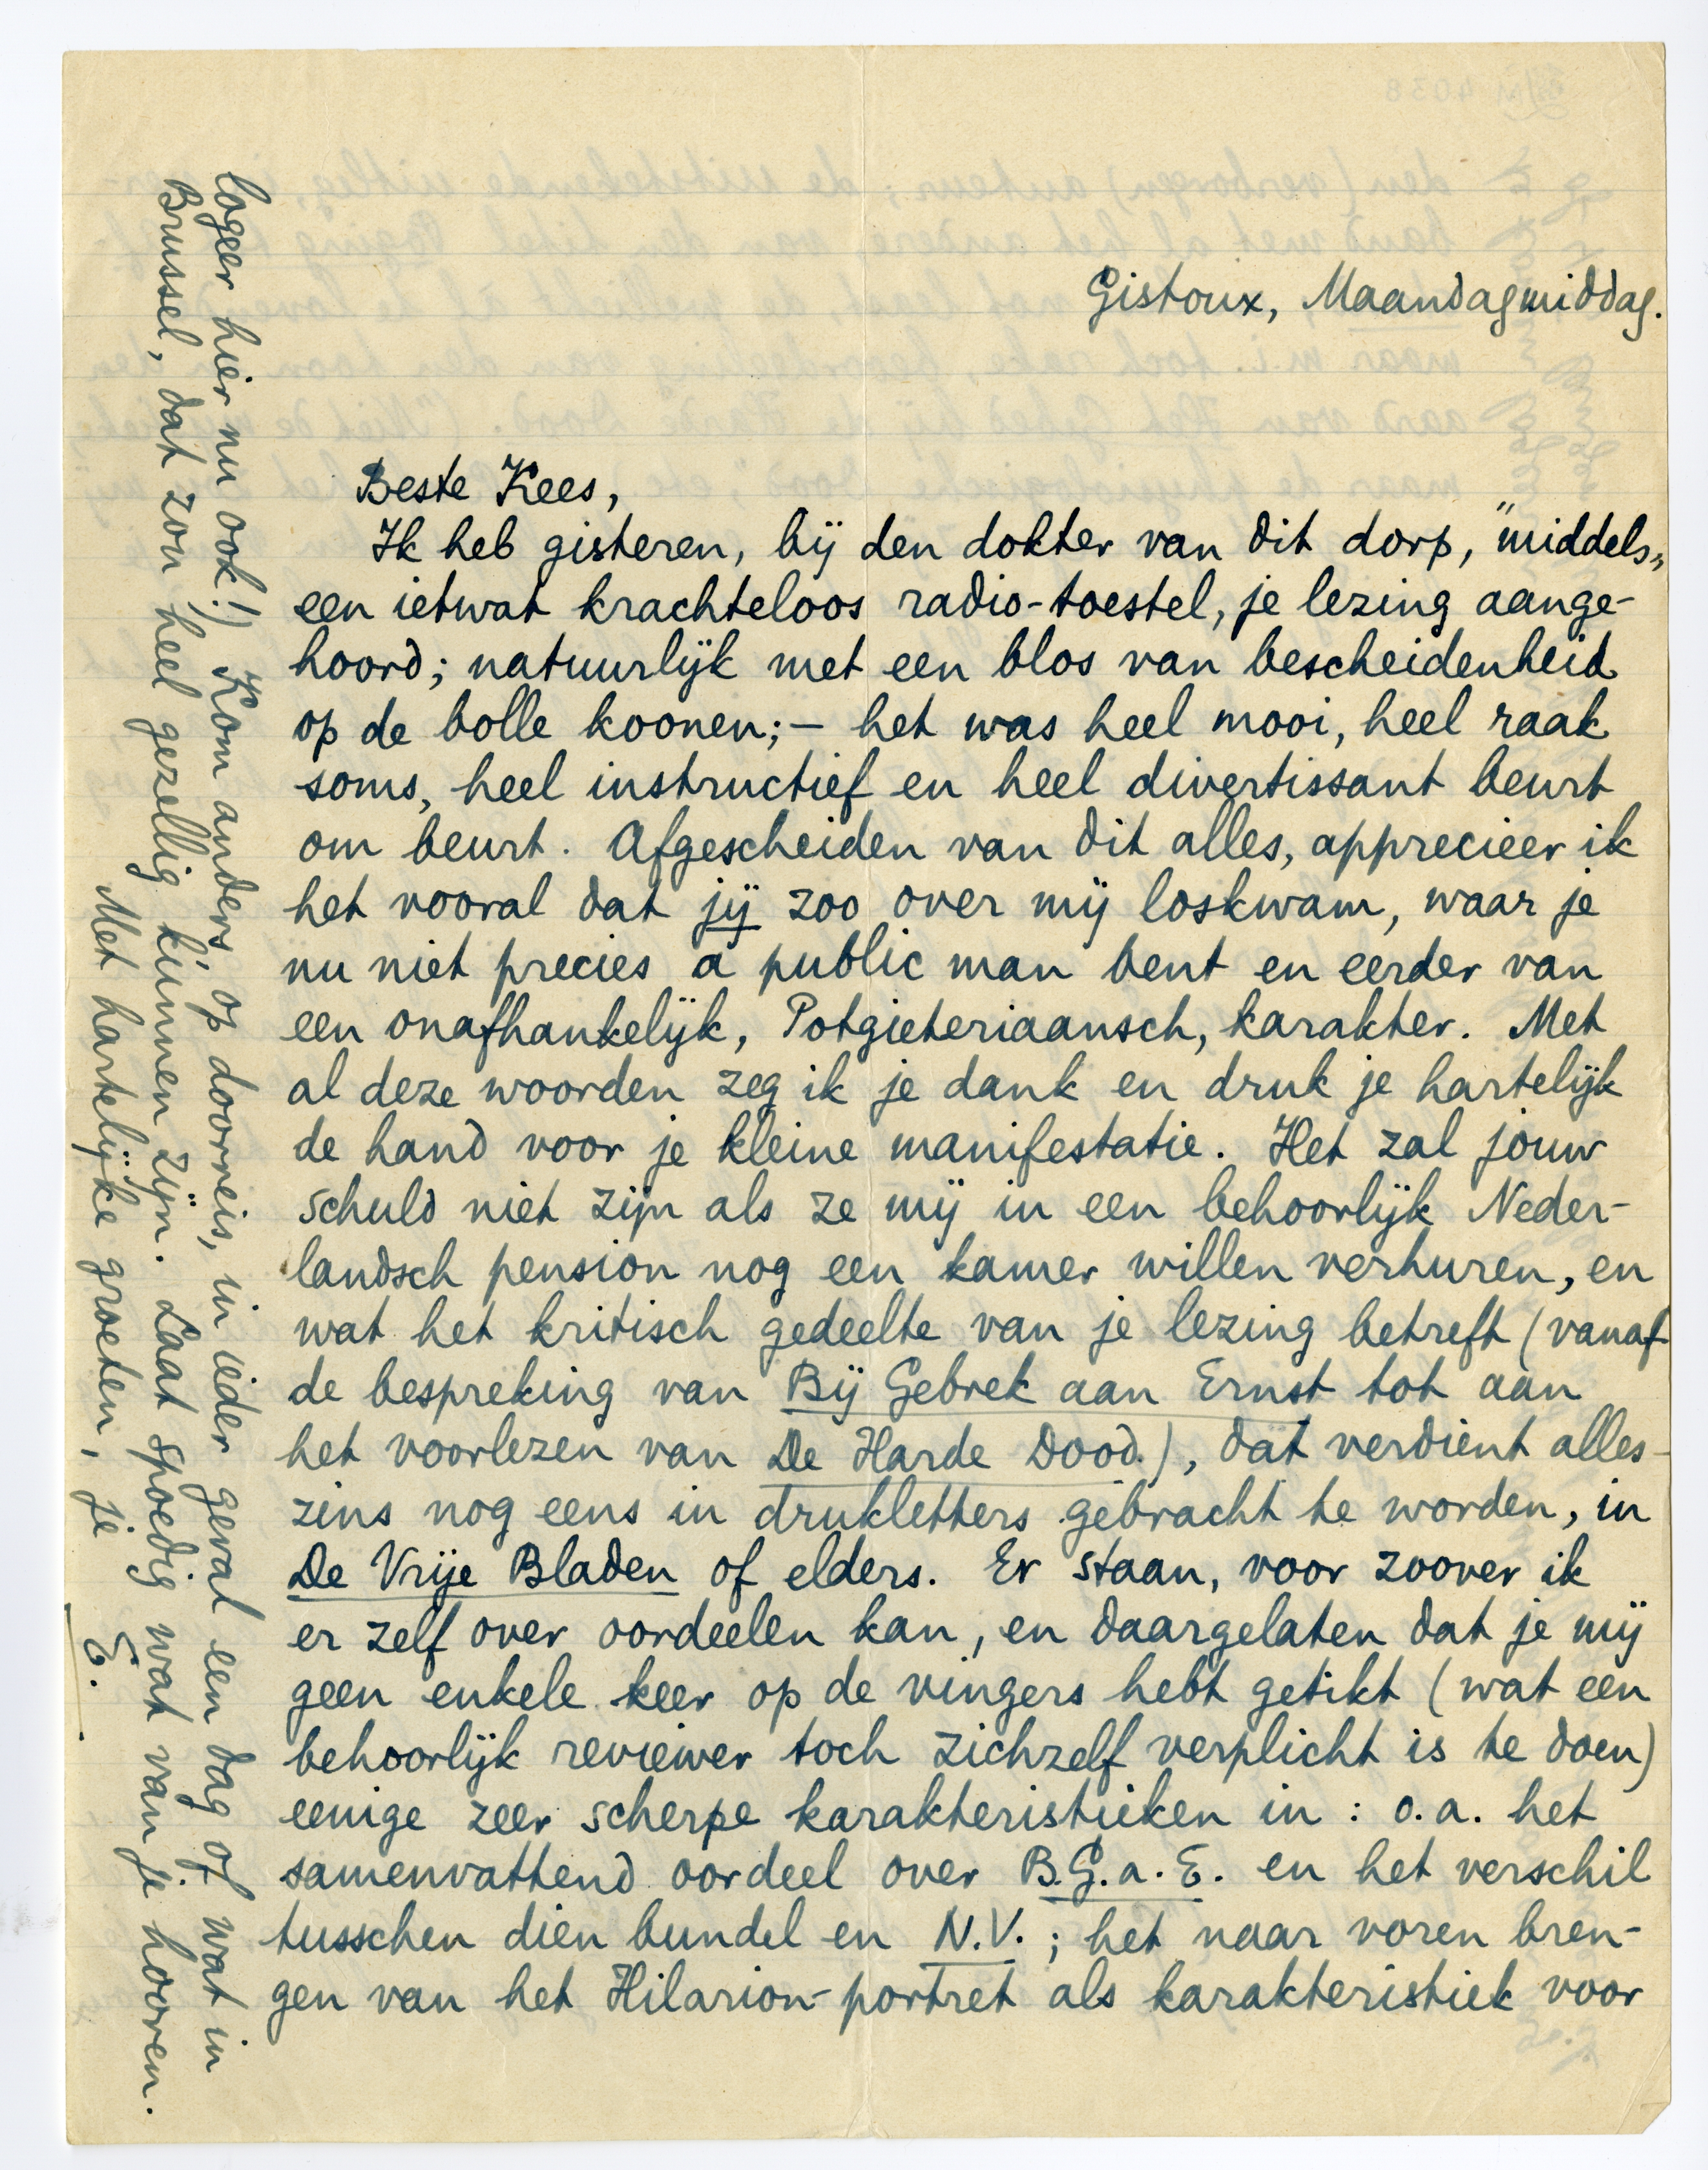 Gistoux, Maandagmiddag.
Beste Kees,
Ik heb gisteren, bij den dokter van dit dorp, "middels"
een ietwat krachteloos radio-toestel, je lezing aange-
hoord; natuurlijk met een blos van bescheidenheid
op de bolle koonen; – het was heel mooi, heel raak
soms, heel instructief en heel divertissant beurt
om beurt. Afgescheiden van dit alles, apprecieer ik
het vooral dat jij zoo over mij loskwam, waar je
nu niet precies a public man bent en eerder van
een onafhankelijk, Potgieteriaansch, karakter. Met
al deze woorden zeg ik je dank en druk je hartelijk
de hand voor je kleine manifestatie. Het zal jouw
schuld niet zijn als ze mij in een behoorlijk Neder-
landsch pension nog een kamer willen verhuren, en
wat het kritisch gedeelte van je lezing betreft (vanaf
de bespreking van Bij Gebrek aan Ernst tot aan
het voorlezen van De Harde Dood.), dat verdient alles-
zins nog eens in drukletters gebracht te worden, in
De Vrije Bladen of elders. Er staan, voor zoover ik
er zelf over oordeelen kan, en daargelaten dat je mij
geen enkele keer op de vingers hebt getikt (wat een
behoorlijk reviewer toch zichzelf verplicht is te doen)
eenige zeer scherpe karakteristieken in: o.a. het
samenvattend oordeel over B.G.a.E. en het verschil
tusschen dien bundel en N.V.; het naar voren bren-
gen van het Hilarion-portret als karakteristiek voor
logeer hier nu ook!) Kom anders, op doorreis, in ieder geval een dag of wat in
Brussel, dat zou heel gezellig kunnen zijn. Laat spoedig wat van je hooren.
Met hartelijke groeten, je
E.